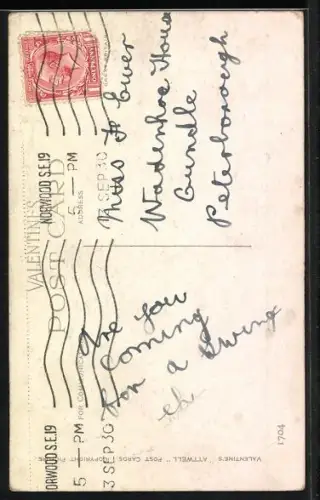 VALENTINE'S
POST CARD
FOR COMMUNICATION
ADDRESS
NORWOOD S.E.19
5 - PM
3 SEP 30
NORWOOD S.E.19
5 - PM
3 SEP 30
Are you
coming
for a swing
eh
Miss F. Ewer
Wadenhoe House
Oundle
Peterborough
VALENTINE'S "ATTWELL" POST CARDS. COPYRIGHT
1704